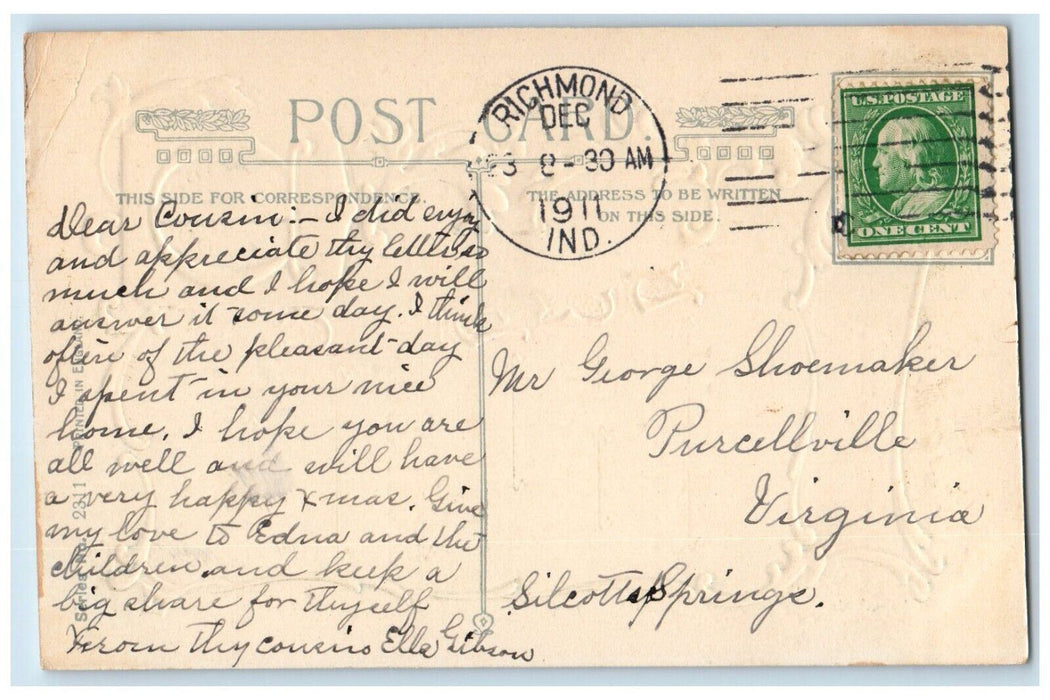 POST CARD.
THIS SIDE FOR CORRESPONDENCE.
THE ADDRESS TO BE WRITTEN
ON THIS SIDE.
RICHMOND
DEC
23 8-30 AM
1911
IND.
U.S. POSTAGE
ONE CENT
Dear Cousin:- I did enjoy
and appreciate thy letter so
much and I hope I will
answer it some day. I think
often of the pleasant day
I spent in your nice
home. I hope you are
all well and will have
a very happy Xmas. Give
my love to Edna and the
children and keep a
big share for thyself
From thy cousin Ella Gibson
Mr George Shoemaker
Purcellville
Virginia
Silcott Springs.
Series No.
PRINTED IN ENGLAND